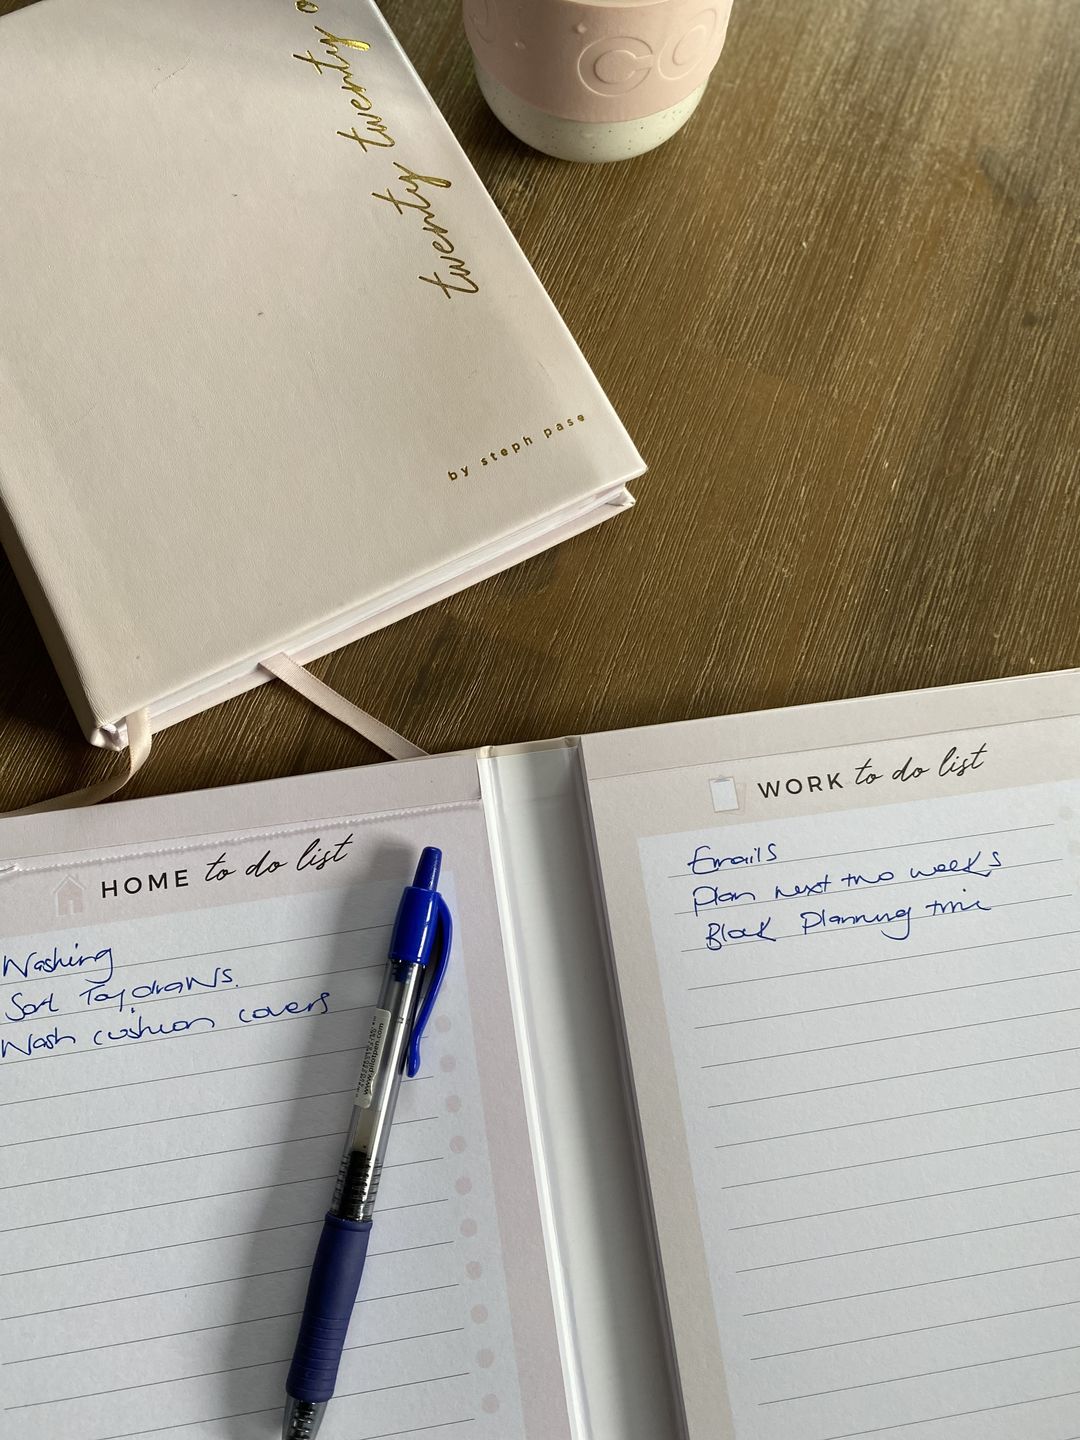 twenty twenty o
by steph pase
GO
HOME to do list
Washing
Sort Toy draws.
Wash cushion covers
www.pilotpen.com
WORK to do list
Emails
Plan next two weeks
Block Planning time